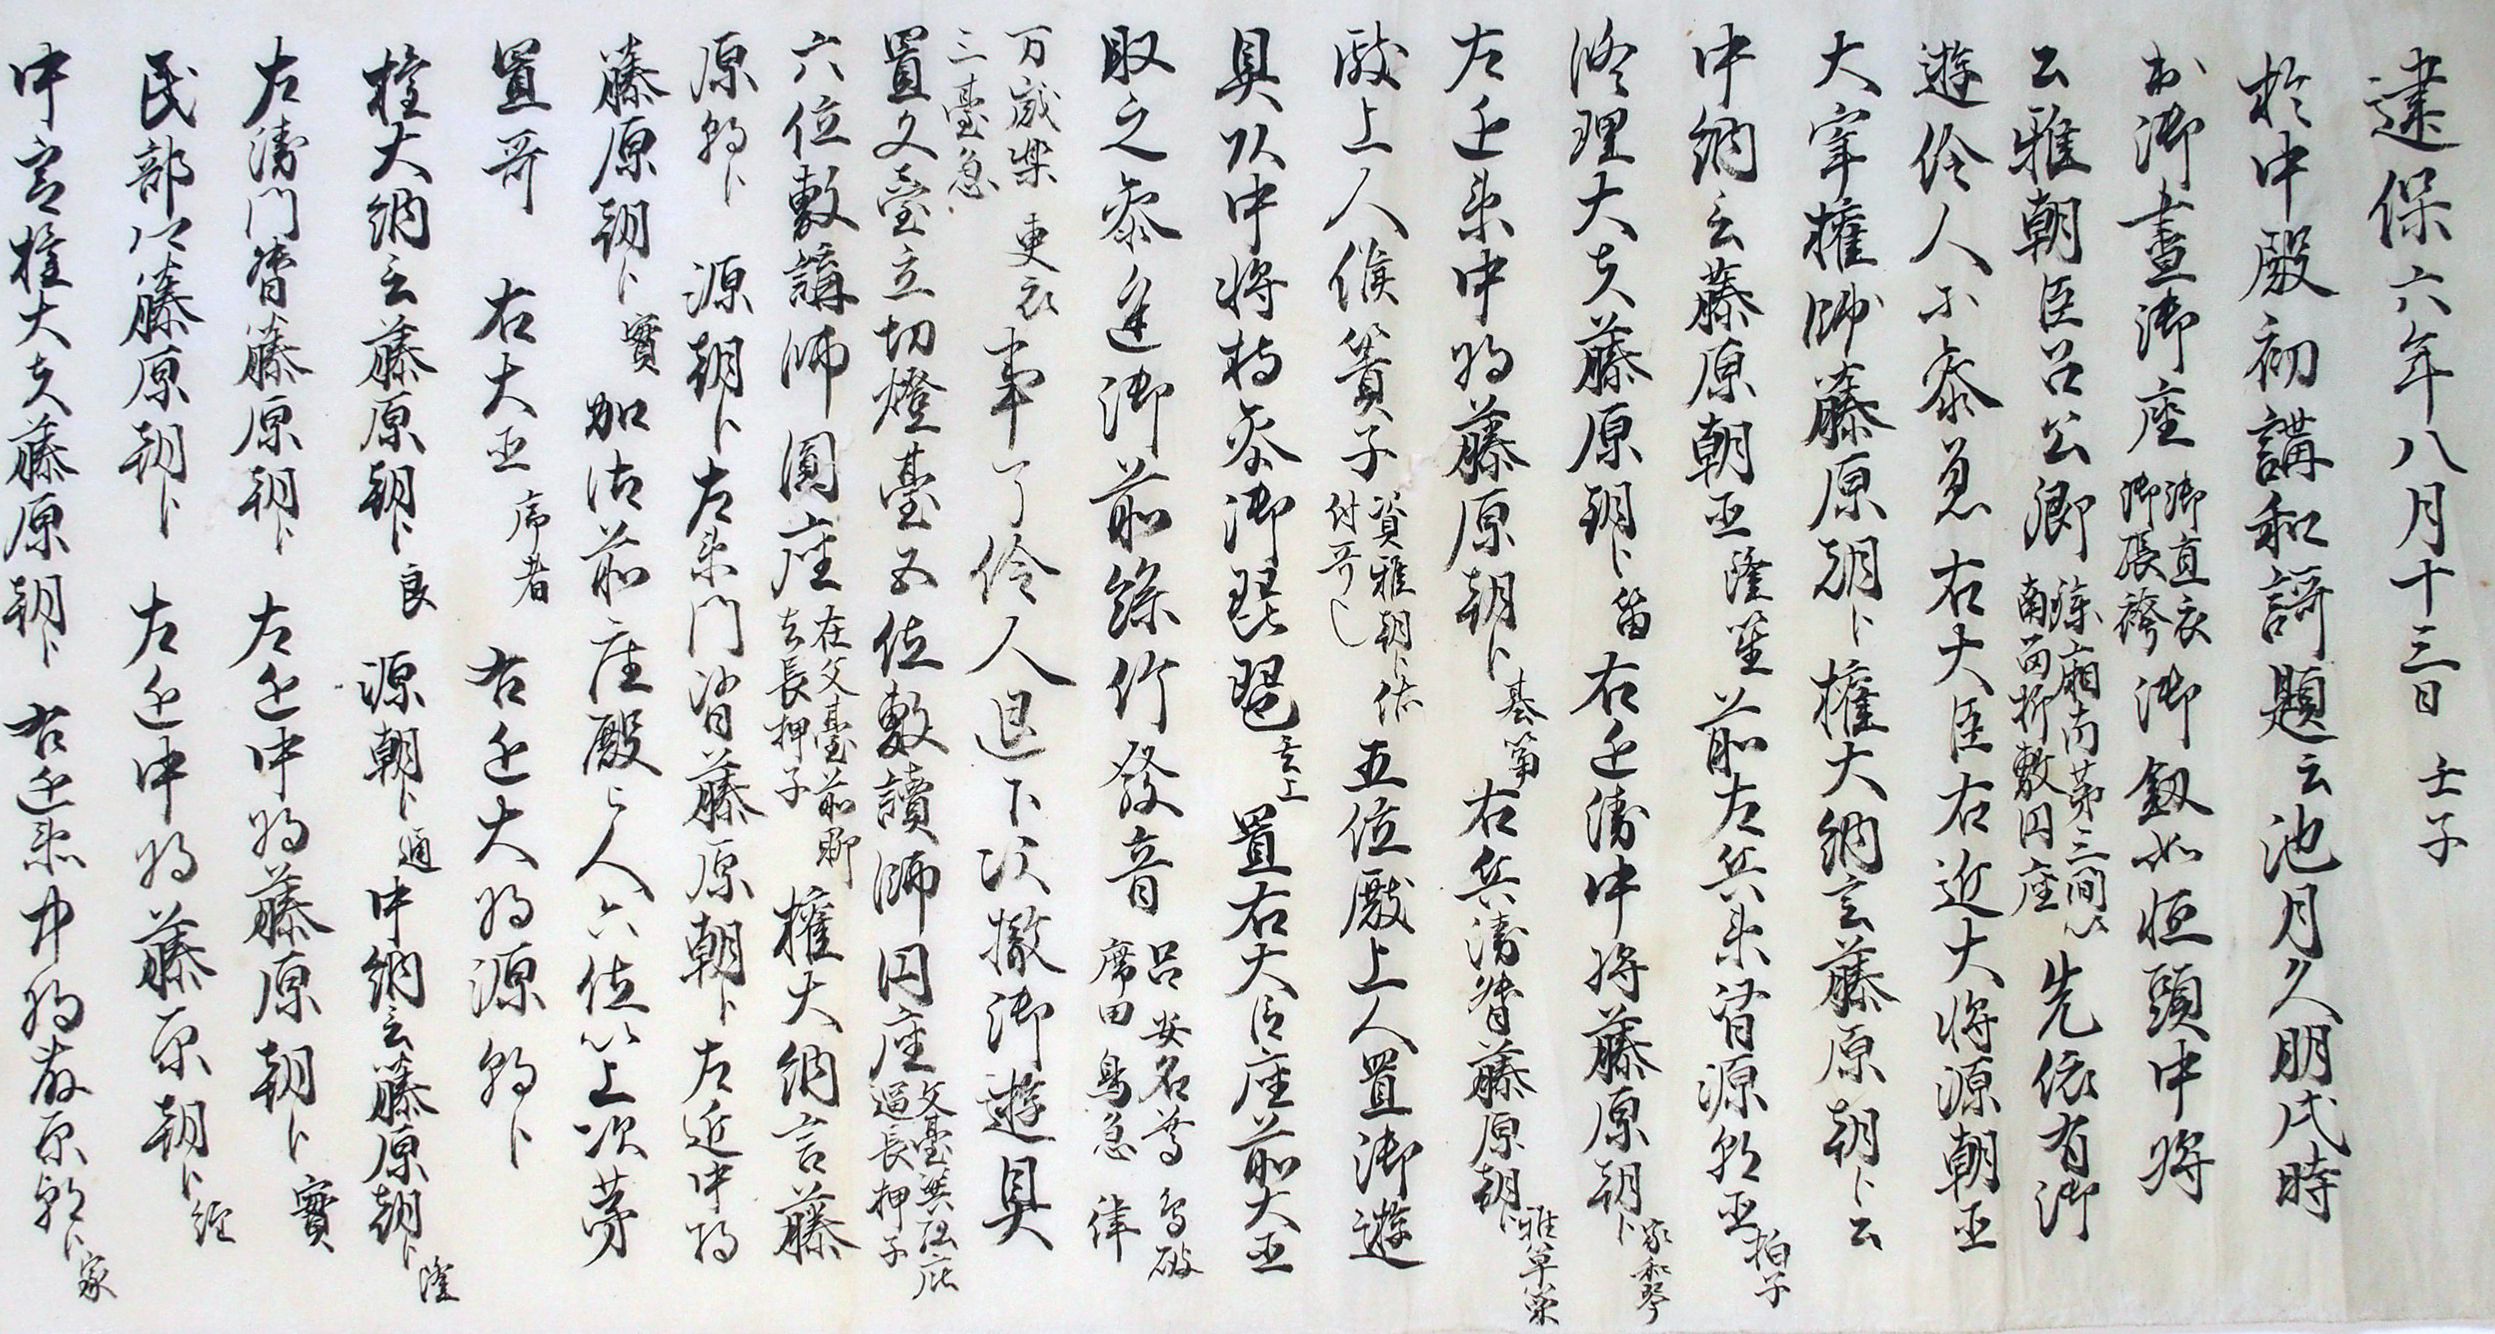 建保六年八月十三日 壬子
於中殿初講和謌題云池月久明戌時
出御晝御座御直衣御張袴御釼如恒頭中将
公雅朝臣召公卿南面折敷円座先依有御
遊伶人等参着右大臣右近大将源朝臣
大宰權帥藤原朝卜權大納言藤原朝卜公
中納言藤原朝臣隆笙前左兵衛督源朝臣拍子
修理大夫藤原朝卜笛右近衛中将藤原朝卜家和琴
左近衛中将藤原朝卜基箏右兵衛督藤原朝卜雅篳篥
殿上人候簀子資雅朝卜付哥五位殿上人置御遊
具頭中将持参御琵琶玄上置右大臣座前大臣
取之参進御前絲竹發音呂安名尊鳥破席田鳥急律
万歳楽更衣三臺急事了伶人退下次撤御遊具
置文臺立切燈臺五位敷讀師円座逼長押子
六位敷講師圓座在文臺前去長押子權大納言藤
原朝卜源朝卜左衛門督藤原朝卜左近中将
藤原朝卜實加治前座殿上人六位以上次第
置哥 右大臣序者 右近大将源朝卜
權大納言藤原朝卜良 源朝卜通中納言藤原朝卜隆
左衛門督藤原朝卜 左近中将藤原朝卜實
民部卿藤原朝卜 左近中将藤原朝卜經
中宮權大夫藤原朝卜 右近衛中将藤原朝卜家